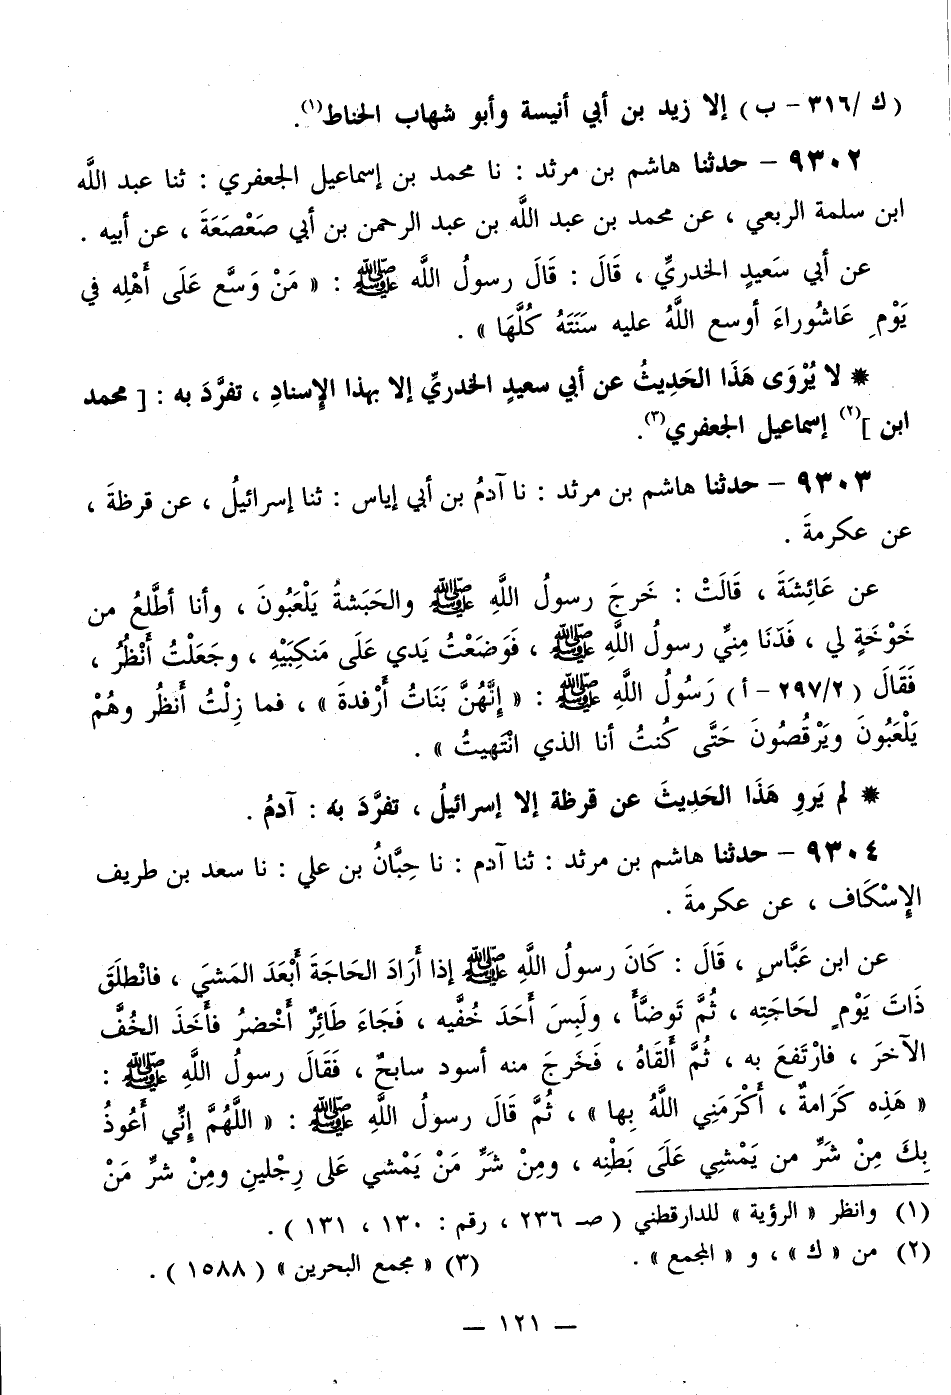 ( ك /٣١٦ - ب ) إلا زيد بن أبي أنيسة وأبو شهاب الحناط(١).
٩٣٠٢ - حدثنا هاشم بن مرثد : نا محمد بن إسماعيل الجعفري : ثنا عبد اللَّه
ابن سلمة الربعي ، عن محمد بن عبد اللَّه بن عبد الرحمن بن أبي صَعْصَعَةَ ، عن أبيه .
عن أبي سَعيدٍ الخدريِّ ، قَالَ : قَالَ رسولُ اللَّه ﷺ : « مَنْ وَسَّع عَلَى أَهْلِه في
يَوْمِ عَاشُوراءَ أوسع اللَّهُ عليه سَنَتَهُ كُلَّهَا » .
* لا يُرْوَى هَذَا الحَدِيثُ عن أبي سعيدٍ الخدريِّ إلا بهذا الإسنادِ ، تفرَّدَ به : [ محمد
ابن ](٢) إسماعيل الجعفري(٣).
٩٣٠٣ - حدثنا هاشم بن مرثد : نا آدمُ بن أبي إياس : ثنا إسرائيلُ ، عن قرظةَ ،
عن عكرمةَ .
عن عَائِشَةَ ، قَالَتْ : خَرجَ رسولُ اللَّهِ ﷺ والحَبَشةُ يَلْعَبُونَ ، وأنا أطَّلعُ من
خَوْخَةٍ لي ، فَدَنَا مِنِّي رسولُ اللَّهِ ﷺ ، فَوَضَعْتُ يَدي عَلَى مَنكِبَيْهِ ، وجَعَلْتُ أَنْظُرُ ،
فَقَالَ ( ٢٩٧/٢ - أ ) رَسُولُ اللَّهِ ﷺ : « إِنَّهُنَّ بَنَاتُ أَرْفدةَ » ، فما زِلْتُ أَنظُر وهُمْ
يَلْعَبُونَ ويَرْقُصُونَ حَتَّى كُنتُ أنا الذي انْتَهيتُ » .
* لم يَروِ هَذَا الحَدِيثَ عن قرظة إلا إسرائيلُ ، تفرَّدَ به : آدمُ .
٩٣٠٤ - حدثنا هاشم بن مرثد : ثنا آدم : نا حِبَّانُ بن علي : نا سعد بن طريف
الإِسْكَاف ، عن عكرمةَ .
عن ابن عَبَّاسٍ ، قَالَ : كَانَ رسولُ اللَّهِ ﷺ إذا أَرَادَ الحَاجَةَ أَبْعَدَ المَشيَ ، فانْطلَقَ
ذَاتَ يَوْمٍ لحَاجَتِه ، ثُمَّ تَوضَّأَ ، ولَبِسَ أَحَدَ خُفَّيه ، فَجَاءَ طَائِرٌ أَخْضرُ فأَخَذَ الخُفَّ
الآخرَ ، فارْتَفعَ به ، ثُمَّ أَلقَاهُ ، فَخَرجَ منه أسود سابحٌ ، فَقَالَ رسولُ اللَّهِ ﷺ :
« هَذِه كَرَامةٌ ، أَكْرَمَنِي اللَّهُ بِها » ، ثُمَّ قَالَ رسولُ اللَّهِ ﷺ : « اللَّهُمَّ إِنِّي أَعُوذُ
بِكَ مِنْ شَرِّ من يَمْشِي عَلَى بَطْنِه ، ومِنْ شَرِّ مَنْ يَمْشي عَلى رِجْلينِ ومِنْ شرِّ مَنْ
(١) وانظر « الرؤية » للدارقطني ( صـ ٢٣٦ ، رقم : ١٣٠ ، ١٣١ ) .
(٢) من « ك » ، و « المجمع » . (٣) « مجمع البحرين » ( ١٥٨٨ ) .
— ١٢١ —